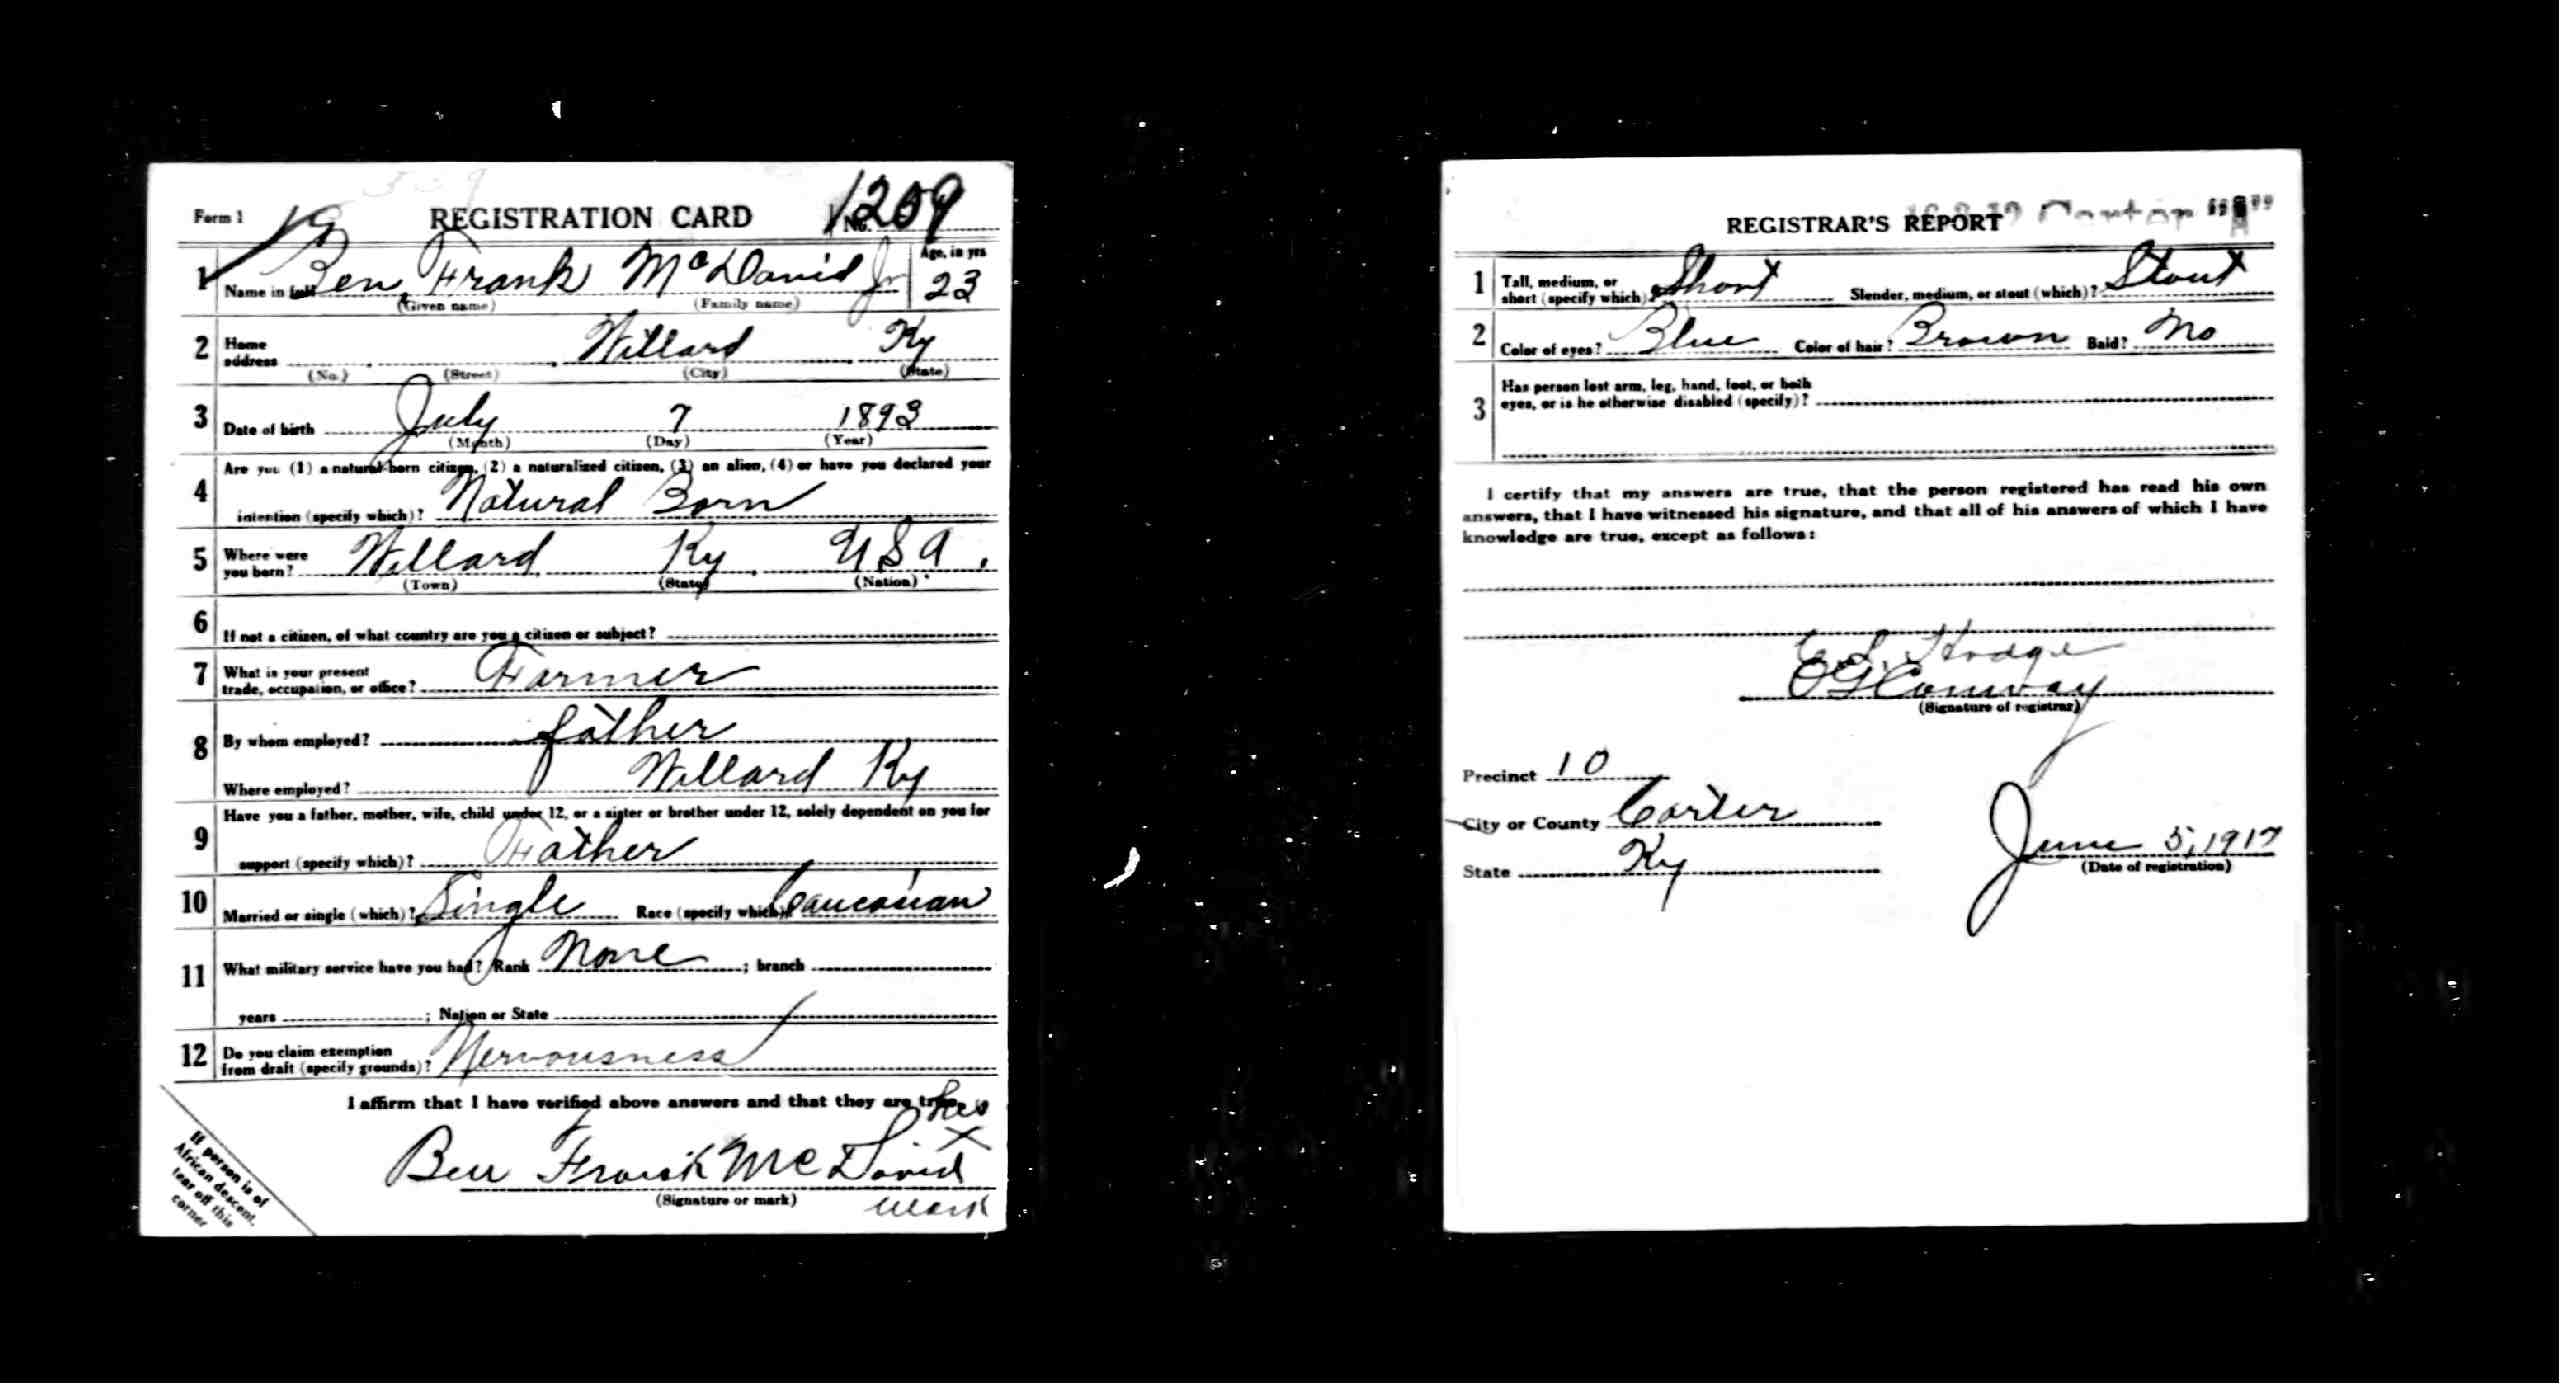 Form 1 19 REGISTRATION CARD No. 1209
1 Name in full Ben Frank McDavid Jr Age, in yrs 23
(Given name) (Family name)
2 Home address Willard Ky
(No.) (Street) (City) (State)
3 Date of birth July 7 1893
(Month) (Day) (Year)
4 Are you (1) a natural-born citizen, (2) a naturalized citizen, (3) an alien, (4) or have you declared your
intention (specify which)? Natural Born
5 Where were you born? Willard Ky USA.
(Town) (State) (Nation)
6 If not a citizen, of what country are you a citizen or subject?
7 What is your present
trade, occupation, or office? Farmer
8 By whom employed? father
Where employed? Willard Ky
9 Have you a father, mother, wife, child under 12, or a sister or brother under 12, solely dependent on you for
support (specify which)? Father
10 Married or single (which)? Single Race (specify which)? Caucasian
11 What military service have you had? Rank None ; branch
years ; Nation or State
12 Do you claim exemption
from draft (specify grounds)? Nervousness
I affirm that I have verified above answers and that they are true.
his
x
Ben Frank McDavid
(Signature or mark) mark
If person is of
African descent,
tear off this
corner
REGISTRAR'S REPORT
1 Tall, medium, or
short (specify which)? Short Slender, medium, or stout (which)? Stout
2 Color of eyes? Blue Color of hair? Brown Bald? No
3 Has person lost arm, leg, hand, foot, or both
eyes, or is he otherwise disabled (specify)?
I certify that my answers are true, that the person registered has read his own
answers, that I have witnessed his signature, and that all of his answers of which I have
knowledge are true, except as follows:
Hodge
Conway
(Signature of registrar)
Precinct 10
City or County Carter
State Ky
June 5, 1917
(Date of registration)